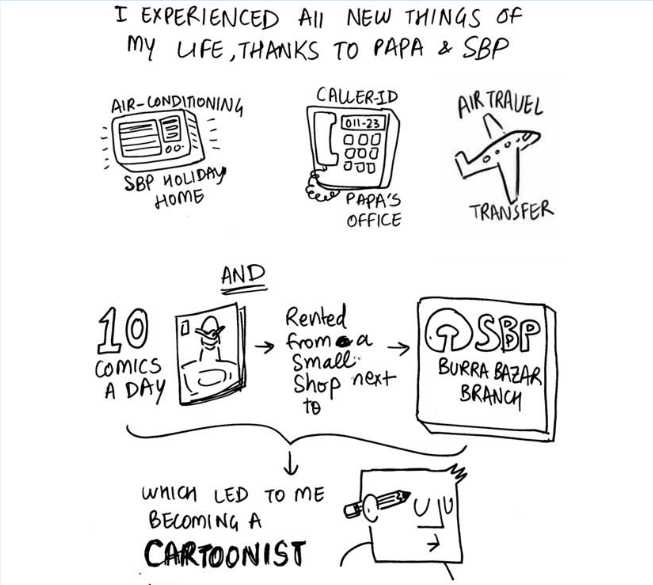 I EXPERIENCED All NEW THINGS OF
MY LIFE, THANKS TO PAPA & SBP
AIR-CONDITIONING
SBP HOLIDAY
HOME
CALLER-ID
011-23
PAPA'S
OFFICE
AIR TRAVEL
TRANSFER
AND
10
COMICS
A DAY
Rented
from a
Small
Shop next
to
SBP
BURRA BAZAR
BRANCH
WHICH LED TO ME
BECOMING A
CARTOONIST